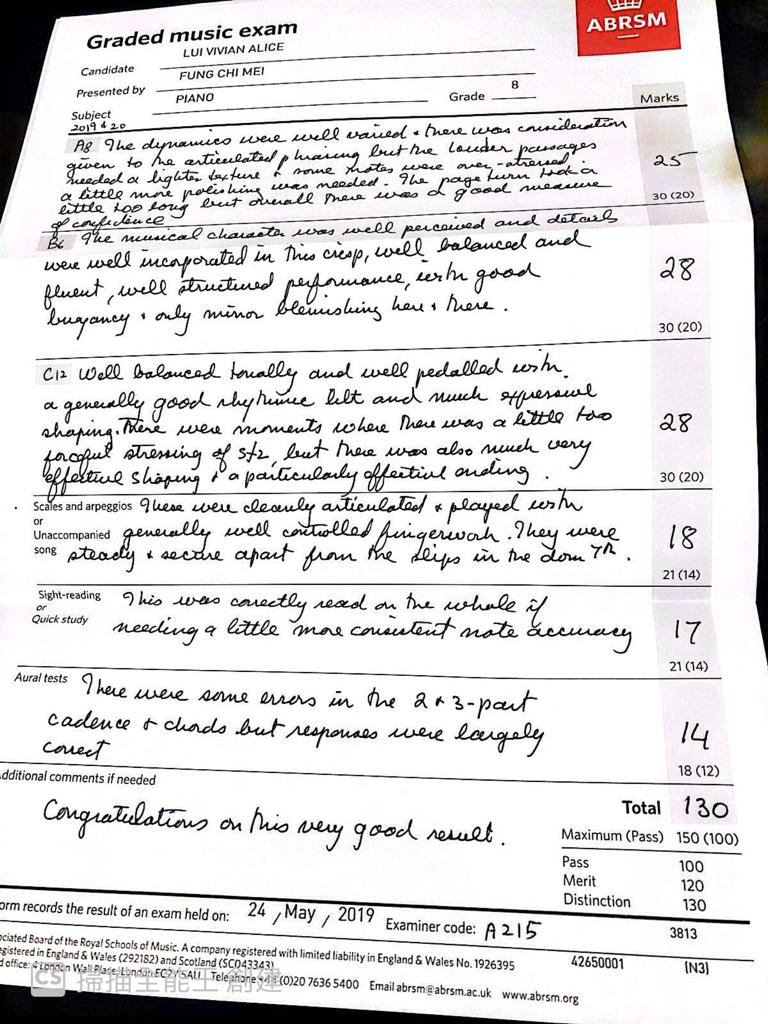 Graded music exam
ABRSM
LUI VIVIAN ALICE
Candidate
FUNG CHI MEI
Presented by
PIANO
Grade 8
Subject
Marks
2019 & 20
A8 The dynamics were well varied & there was consideration
given to the articulated phrasing but the louder passages
needed a lighter texture & some notes were over-stressed
a little more polishing was needed. The page turn took a
little too long but overall there was a good measure
of confidence.
25
30 (20)
B6 The musical character was well perceived and details
were well incorporated in this crisp, well balanced and
fluent, well structured performance, with good
buoyancy & only minor blemishing here & there.
28
30 (20)
C12 Well balanced tonally and well pedalled with
a generally good rhythmic lilt and much expressive
shaping. There were moments where there was a little too
forceful stressing of but there was also much very
effective shaping & a particularly effective ending.
28
30 (20)
Scales and arpeggios
or
Unaccompanied
song
These were cleanly articulated & played with
generally well controlled fingerwork. They were
steady & secure apart from the slips in the dom 7th.
18
21 (14)
Sight-reading
or
Quick study
This was correctly read on the whole if
needing a little more consistent note accuracy
17
21 (14)
Aural tests
There were some errors in the 2 & 3-part
cadence & chords but responses were largely
correct
14
18 (12)
dditional comments if needed
Congratulations on this very good result.
Total 130
Maximum (Pass) 150 (100)
Pass 100
Merit 120
Distinction 130
orm records the result of an exam held on: 24, May, 2019 Examiner code: A215
3813
ociated Board of the Royal Schools of Music. A company registered with limited liability in England & Wales No. 1926395
egistered in England & Wales (292182) and Scotland (SC043343)
42650001 (N3)
d office: 4 London Wall Place, London EC2Y 5AU Telephone +44 (0)20 7636 5400 Email abrsm@abrsm.ac.uk www.abrsm.org
CS 扫描全能王 创建